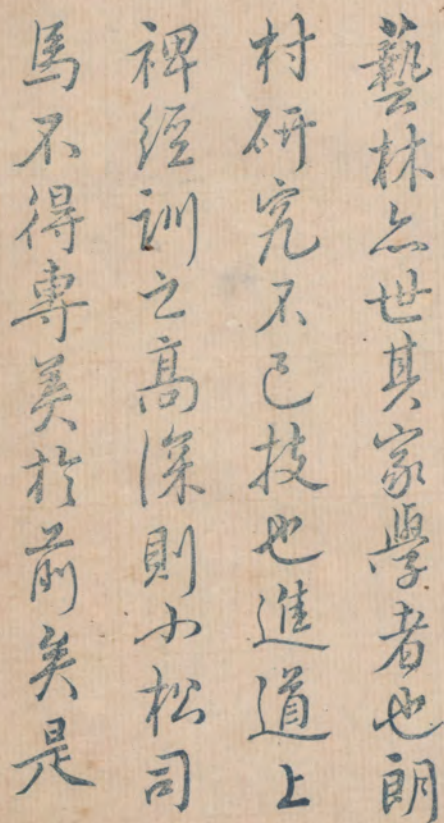 藝林亦世其家學者也朗
村研究不已技也進道上
裨經訓之高深則小松司
馬不得專美於前矣是